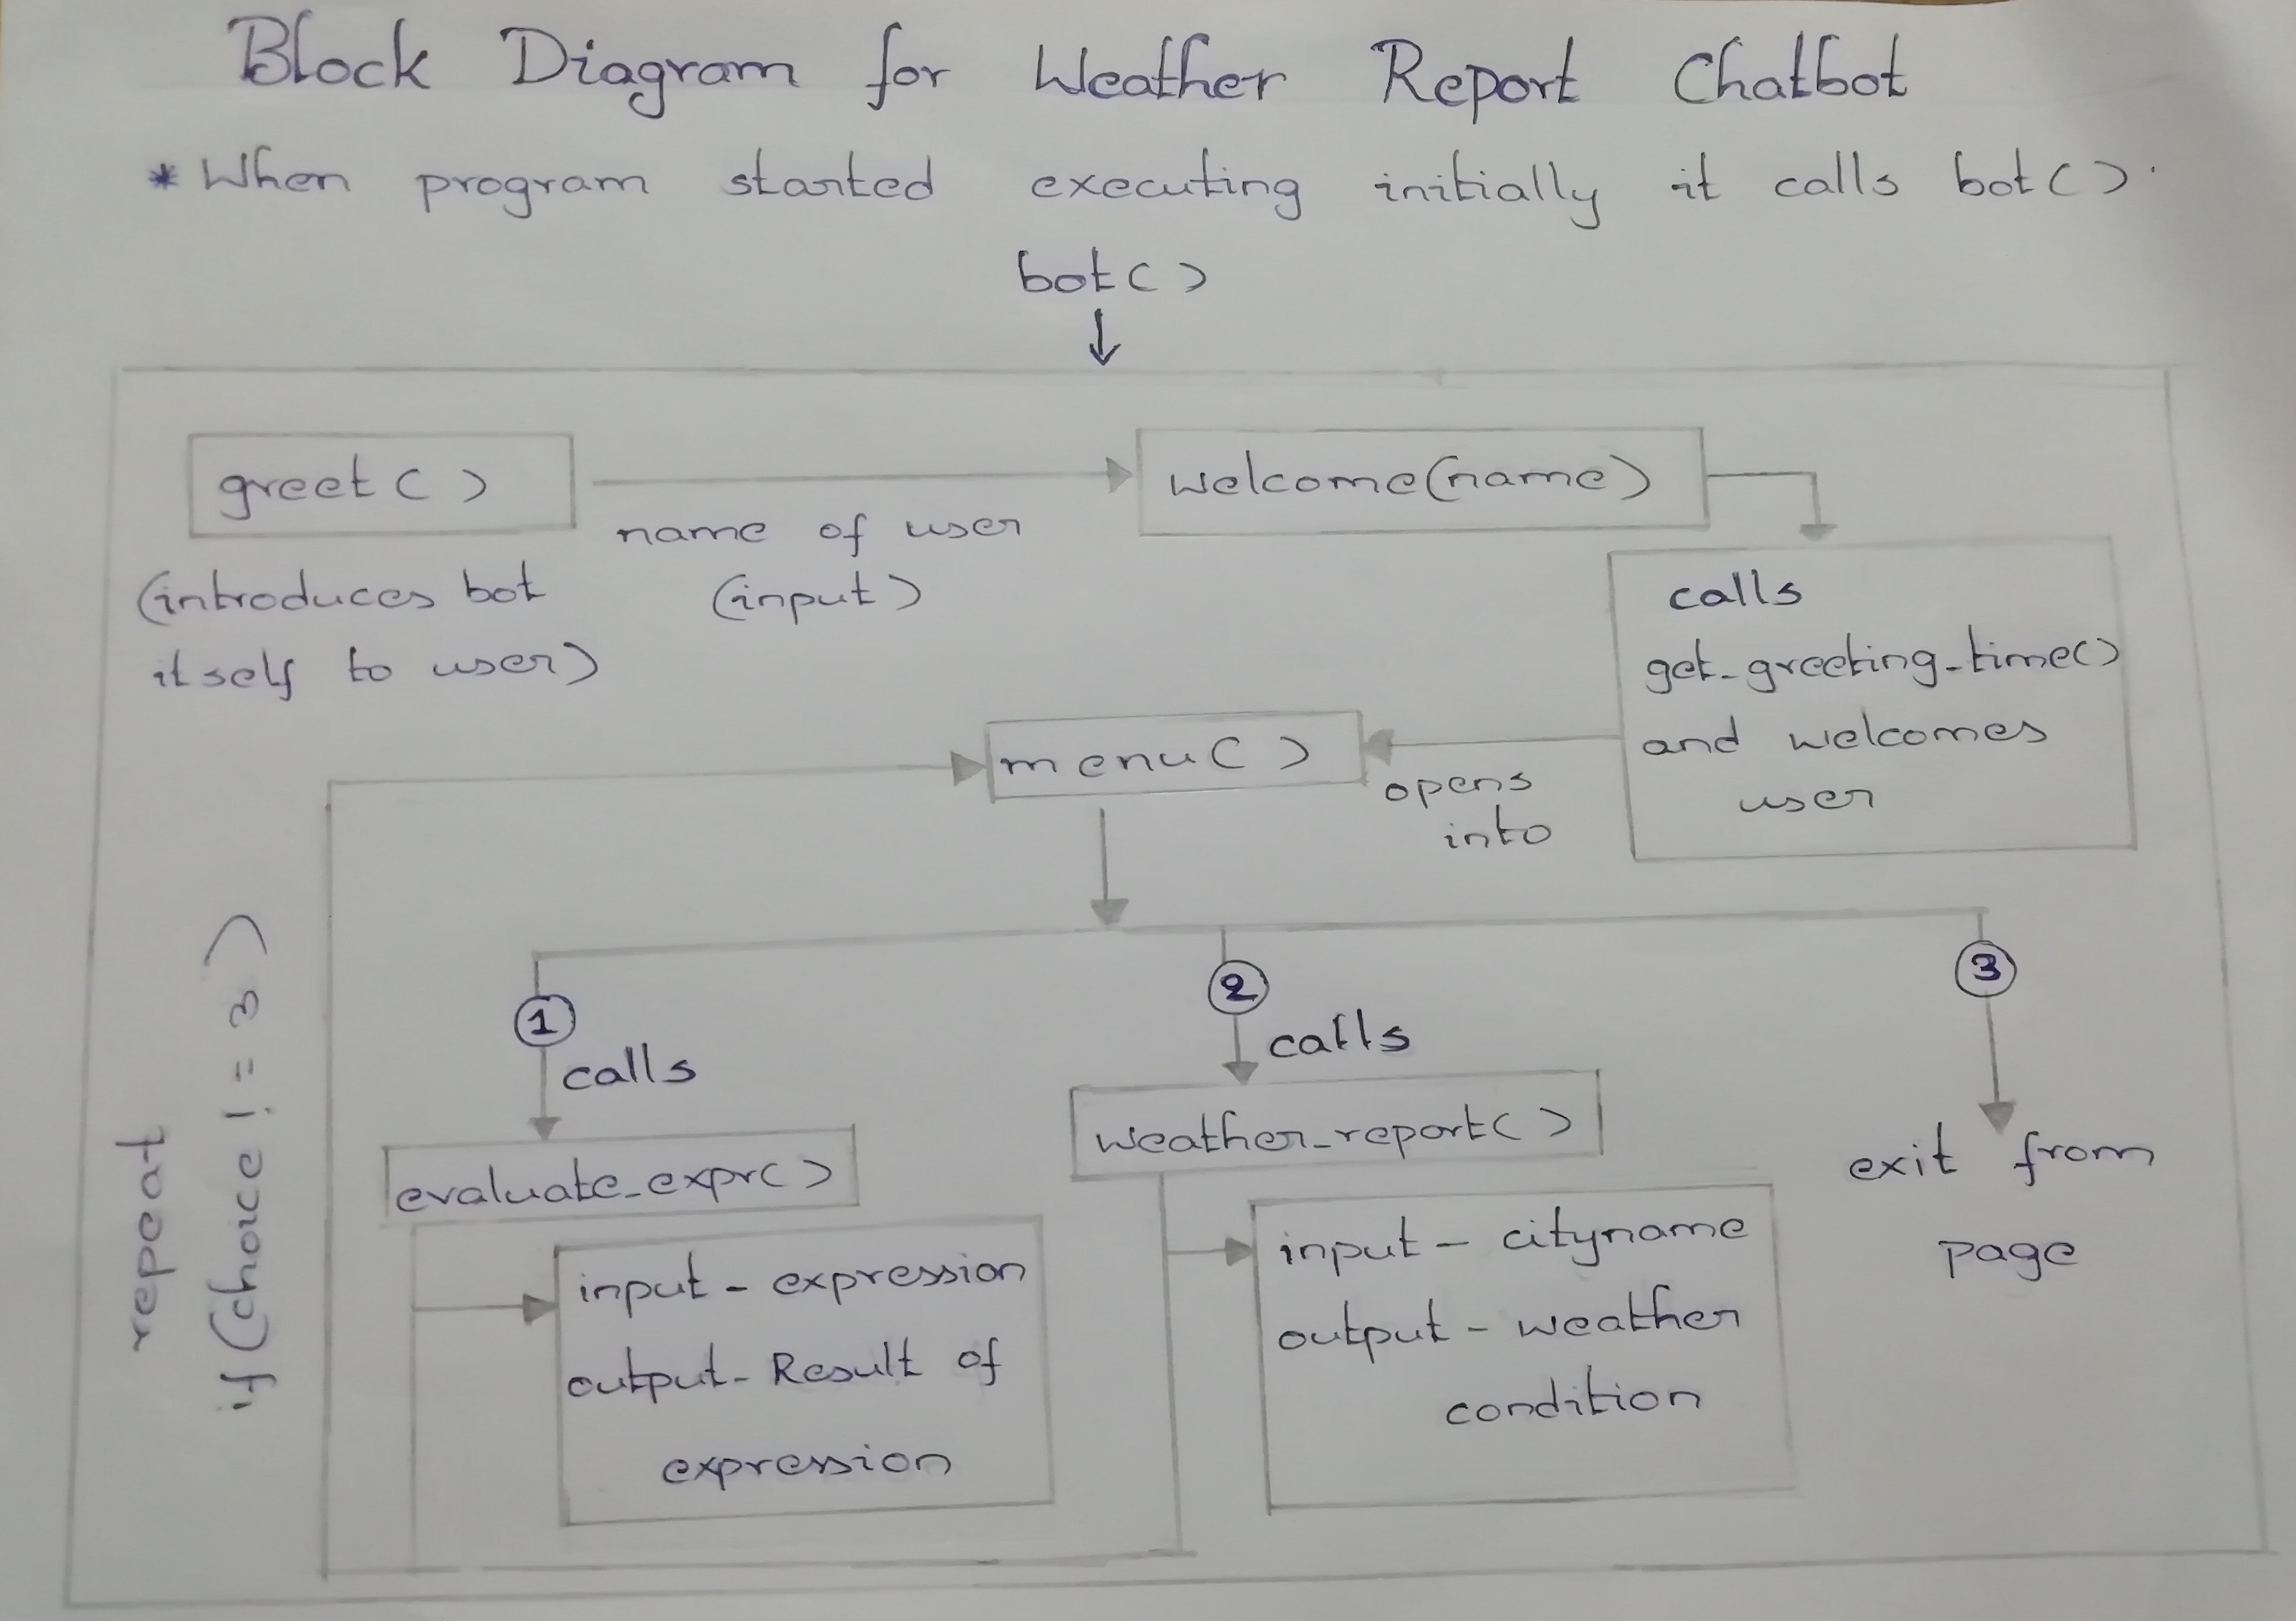 Block Diagram for Weather Report Chatbot
* When program started executing initially it calls bot().
bot()
greet()
name of user
(input)
welcome(name)
(introduces bot
itself to user)
calls
get_greeting_time()
and welcomes
user
opens
into
menu()
repeat
if(choice != 3)
1
calls
evaluate_expr()
input - expression
output - Result of
expression
2
calls
weather_report()
input - cityname
output - weather
condition
3
exit from
page